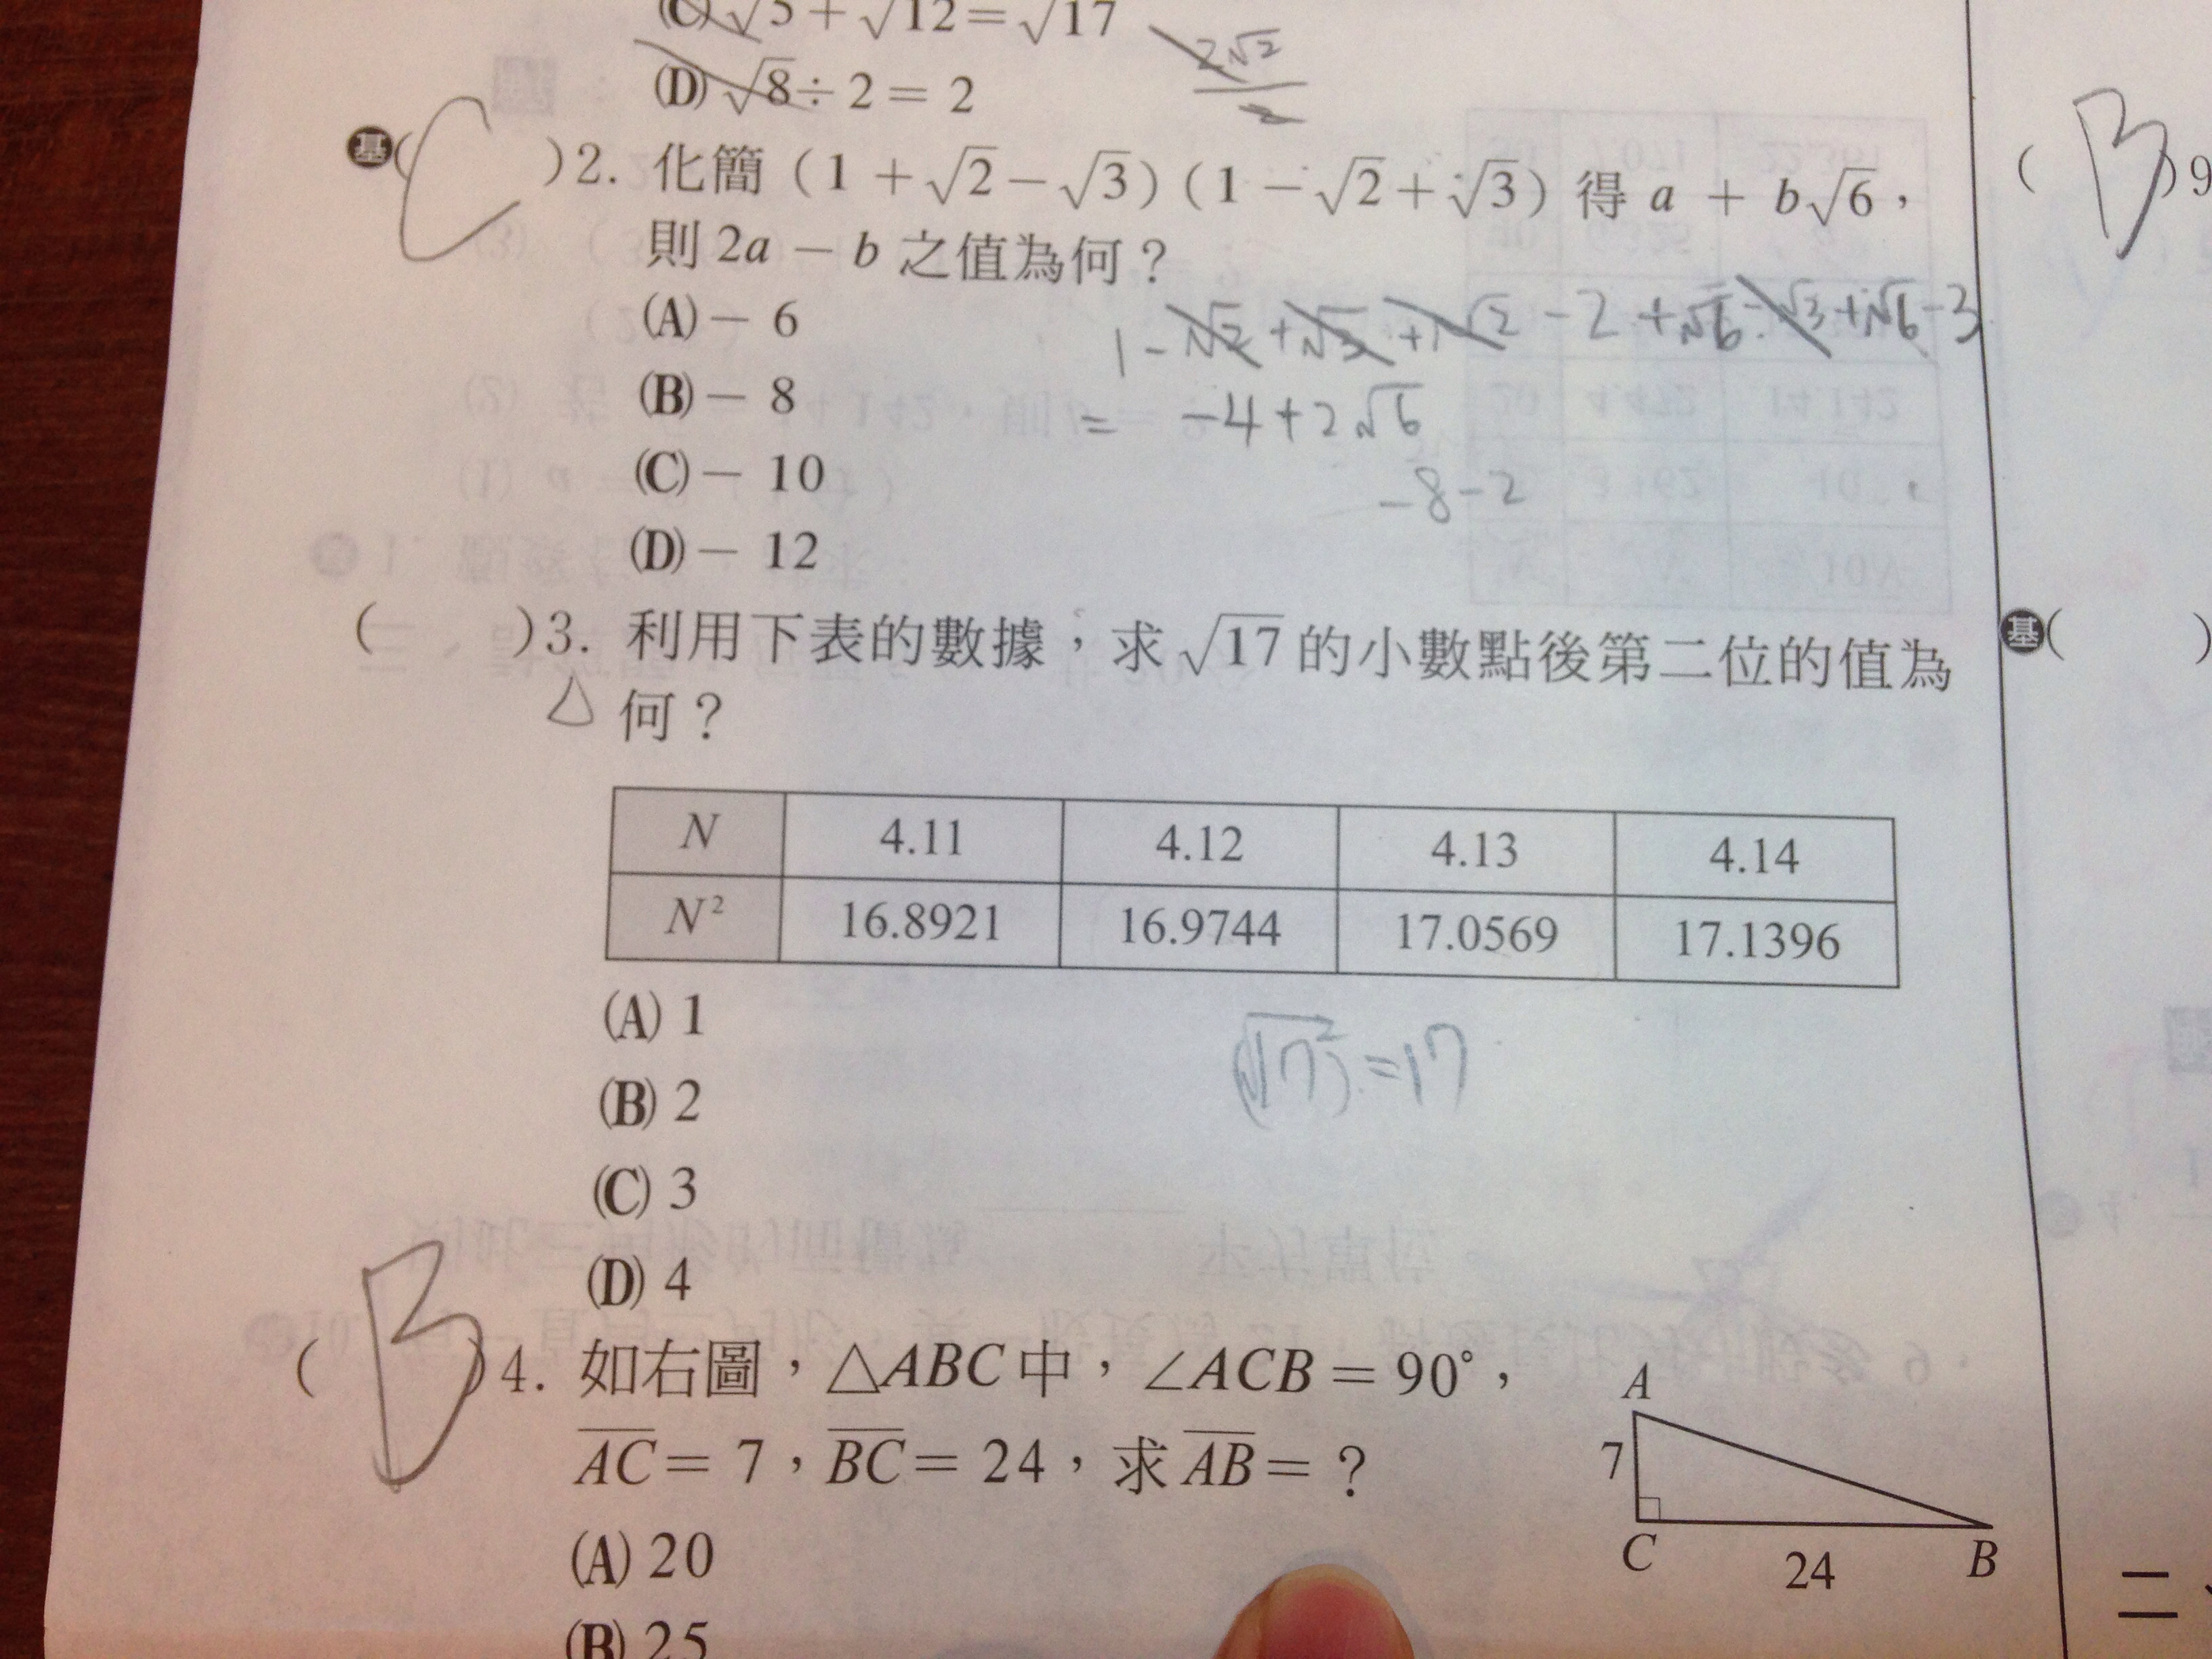 (C) √5 + √12 = √17
(D) √8 ÷ 2 = 2
2√2
2
基( C )2. 化簡 (1 + √2 − √3)(1 − √2 + √3) 得 a + b√6,
則 2a − b 之值為何?
(A) − 6
1 − √2 + √3 + √2 − 2 + √6 − √3 + √6 − 3
(B) − 8
= −4 + 2√6
(C) − 10
−8 − 2
(D) − 12
( )3. 利用下表的數據,求 √17 的小數點後第二位的值為
△ 何?
N 4.11 4.12 4.13 4.14
N² 16.8921 16.9744 17.0569 17.1396
(A) 1
(√17)² = 17
(B) 2
(C) 3
(D) 4
( B )4. 如右圖,△ABC 中,∠ACB = 90°,
AC = 7,BC = 24,求 AB = ?
A
7
C
24
B
(A) 20
(B) 25
( B )9
基( )
二、